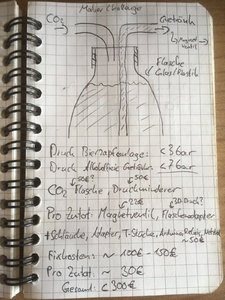 Maker Challenge
CO₂
Getränk
→ Magnet-
ventil
Flasche
Glas/Plastik
Druck Bierzapfanlage: < 3bar
Druck Alkoholfreie Getränke: < 7bar
50€? 50€
CO₂ Flasche, Druckminderer
22€ 3D-Druck?
Pro Zutat: Magnetventil, Flaschenadapter
+ Schläuche, Adapter, T-Stücke, Arduino, Relais, Netzteil
~50€
Fixkosten: ~ 100€ - 150€
Pro Zutat: ~ 30€
Gesamt: < 300€